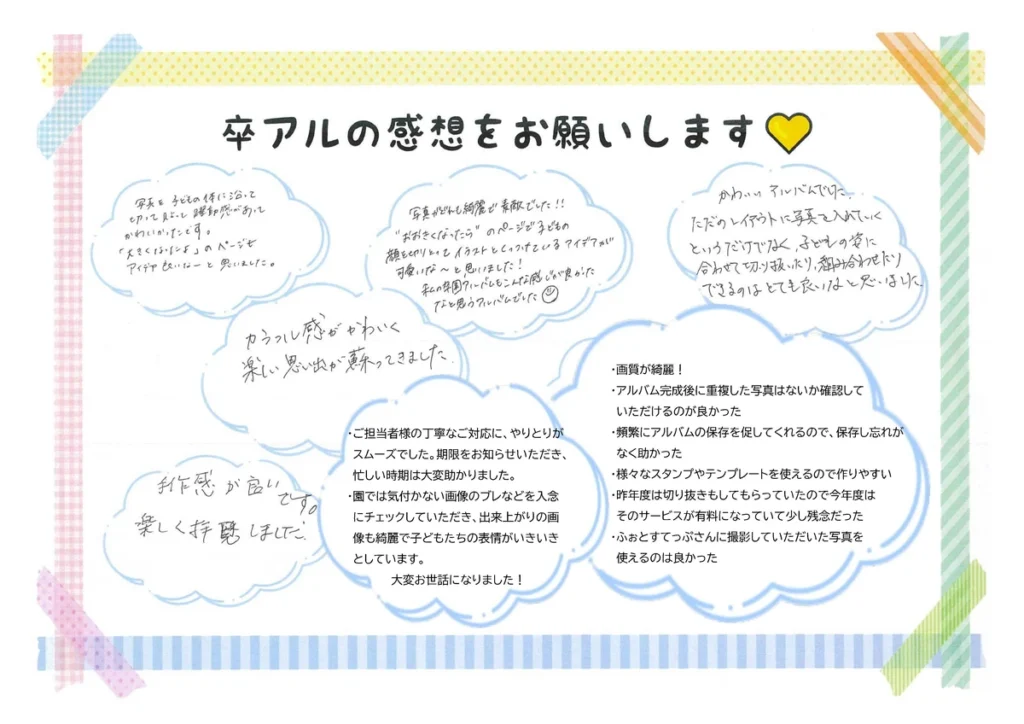 卒アルの感想をお願いします
写真を子どもの体に沿って
切って貼って躍動感があって
かわいかったです。
「大きくなったよ」のページも
アイデア良いな〜と思いました。
写真がどれも綺麗で素敵でした!!
"おおきくなったら"のページで子どもの
顔を切りとってイラストとくっつけているアイデアが
可愛いな〜と思いました!
私の卒園アルバムもこんな感じが良かった
なと思うアルバムでした
かわいいアルバムでした。
ただのレイアウトに写真を入れていく
というだけでなく、子どもの姿に
合わせて切り抜いたり、組み合わせたり
できるのはとても良いなと思いました。
カラフル感がかわいく
楽しい思い出が蘇ってきました
手作感が良い
です。
楽しく拝聴しました。
・ご担当者様の丁寧なご対応に、やりとりが
スムーズでした。期限をお知らせいただき、
忙しい時期は大変助かりました。
・園では気付かない画像のブレなどを入念
にチェックしていただき、出来上がりの画
像も綺麗で子どもたちの表情がいきいき
としています。
大変お世話になりました!
・画質が綺麗!
・アルバム完成後に重複した写真はないか確認して
いただけるのが良かった
・頻繁にアルバムの保存を促してくれるので、保存し忘れが
なく助かった
・様々なスタンプやテンプレートを使えるので作りやすい
・昨年度は切り抜きもしてもらっていたので今年度は
そのサービスが有料になっていて少し残念だった
・ふぉとすてっぷさんに撮影していただいた写真を
使えるのは良かった